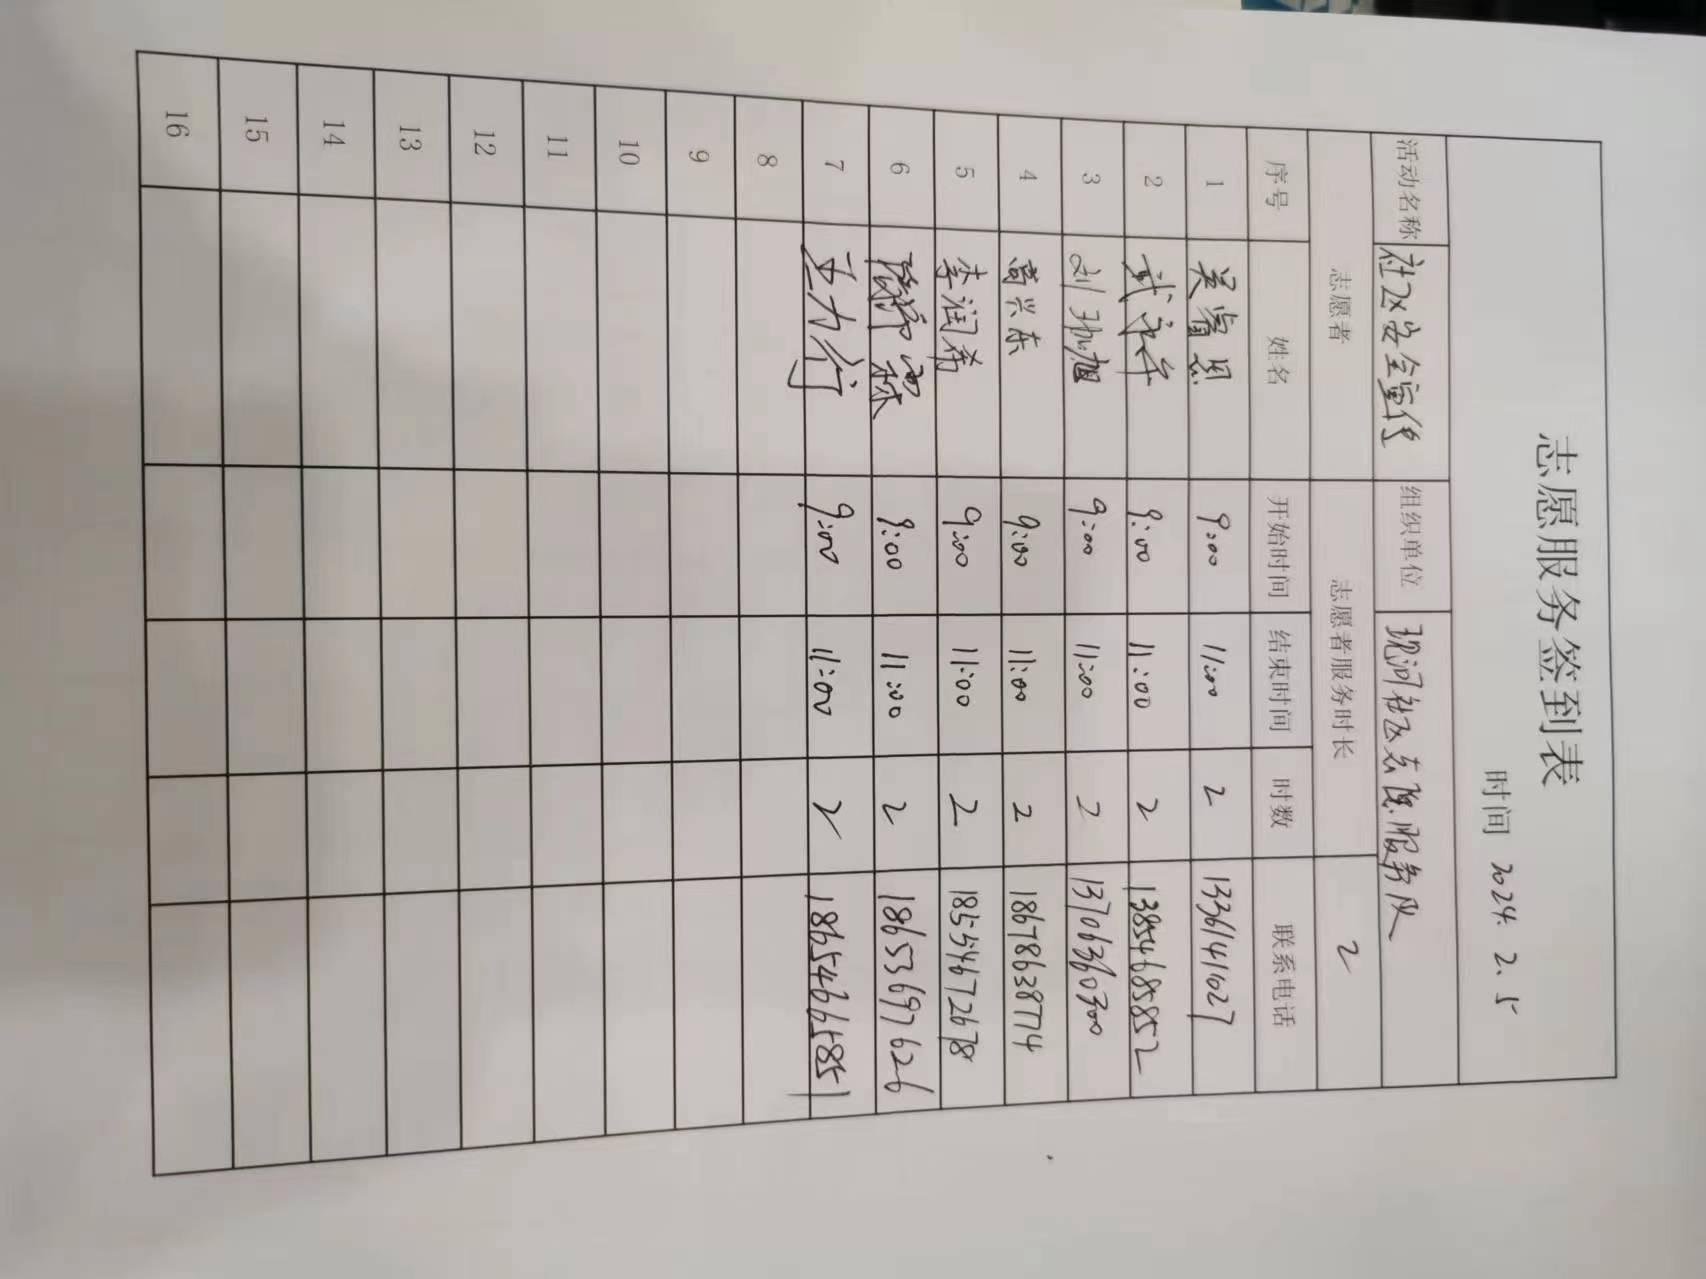 志愿服务签到表
时间 2024. 2. 5
活动名称 社区安全宣传 组织单位 现河社区志愿服务队
志愿者 志愿者服务时长 2
序号 姓名 开始时间 结束时间 时数 联系电话
1 吴睿思 9:00 11:00 2 13361411027
2 武 9:00 11:00 2 13854685852
3 刘珈旭 9:00 11:00 2 13706360300
4 高兴东 9:00 11:00 2 18678638774
5 李润希 9:00 11:00 2 18554672678
6 9:00 11:00 2 18653697626
7 王力行 9:00 11:00 2 18654665851
8
9
10
11
12
13
14
15
16